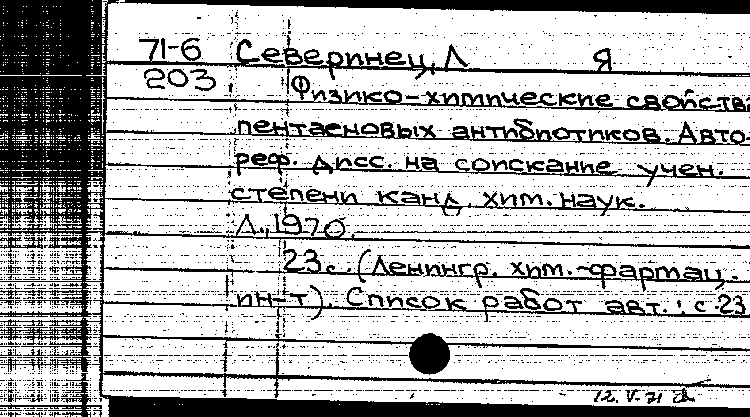 71-6 Северинец, Л Я
203 Физико-химические свойства
пентаеновых антибиотиков. Авто-
реф. дисс. на соискание учен.
степени канд. хим. наук.
Л., 1970.
23 с. (Ленингр. хим.-фармац.
ин-т). Список работ авт.: с. 23
12.V.71